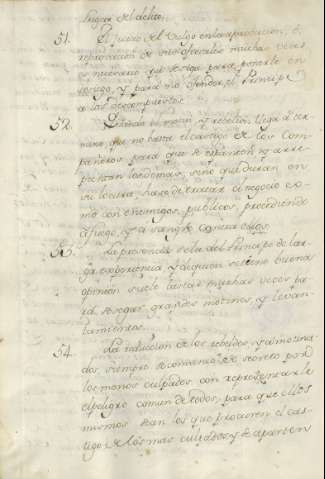 lugar del delito.
51. El juicio del vulgo en la aprobacion, ó
reprovacion de sus oficiales muchas veces
es necesario que se siga para ponerle en
sosiego, y para no ofender el Principe
a los descompuestos.
52. Quando el motin y rebelion llega á ter-
mino, que no basta el castigo de los Com-
pañeros para que se espanten y arre-
pientan los demas, sino que duran en
su locura, hase de tratar el negocio co-
mo con enemigos publicos, procediendo
a fuego, y a sangre contra ellos.
53. La presencia sola del Principe de lar-
ga experiencia, y de quien se tiene buena
opinion suele bastar muchas veces pa-
ra sosegar grandes motines, y levan-
tamientos.
54. La reduccion de los rebeldes y amotina-
dos, siempre es conveniente de secreto por
los menos culpados, con representarle
el peligro comun de todos, para que ellos
mismos sean los que procuren el cas-
tigo de los mas culpados, y se aparten